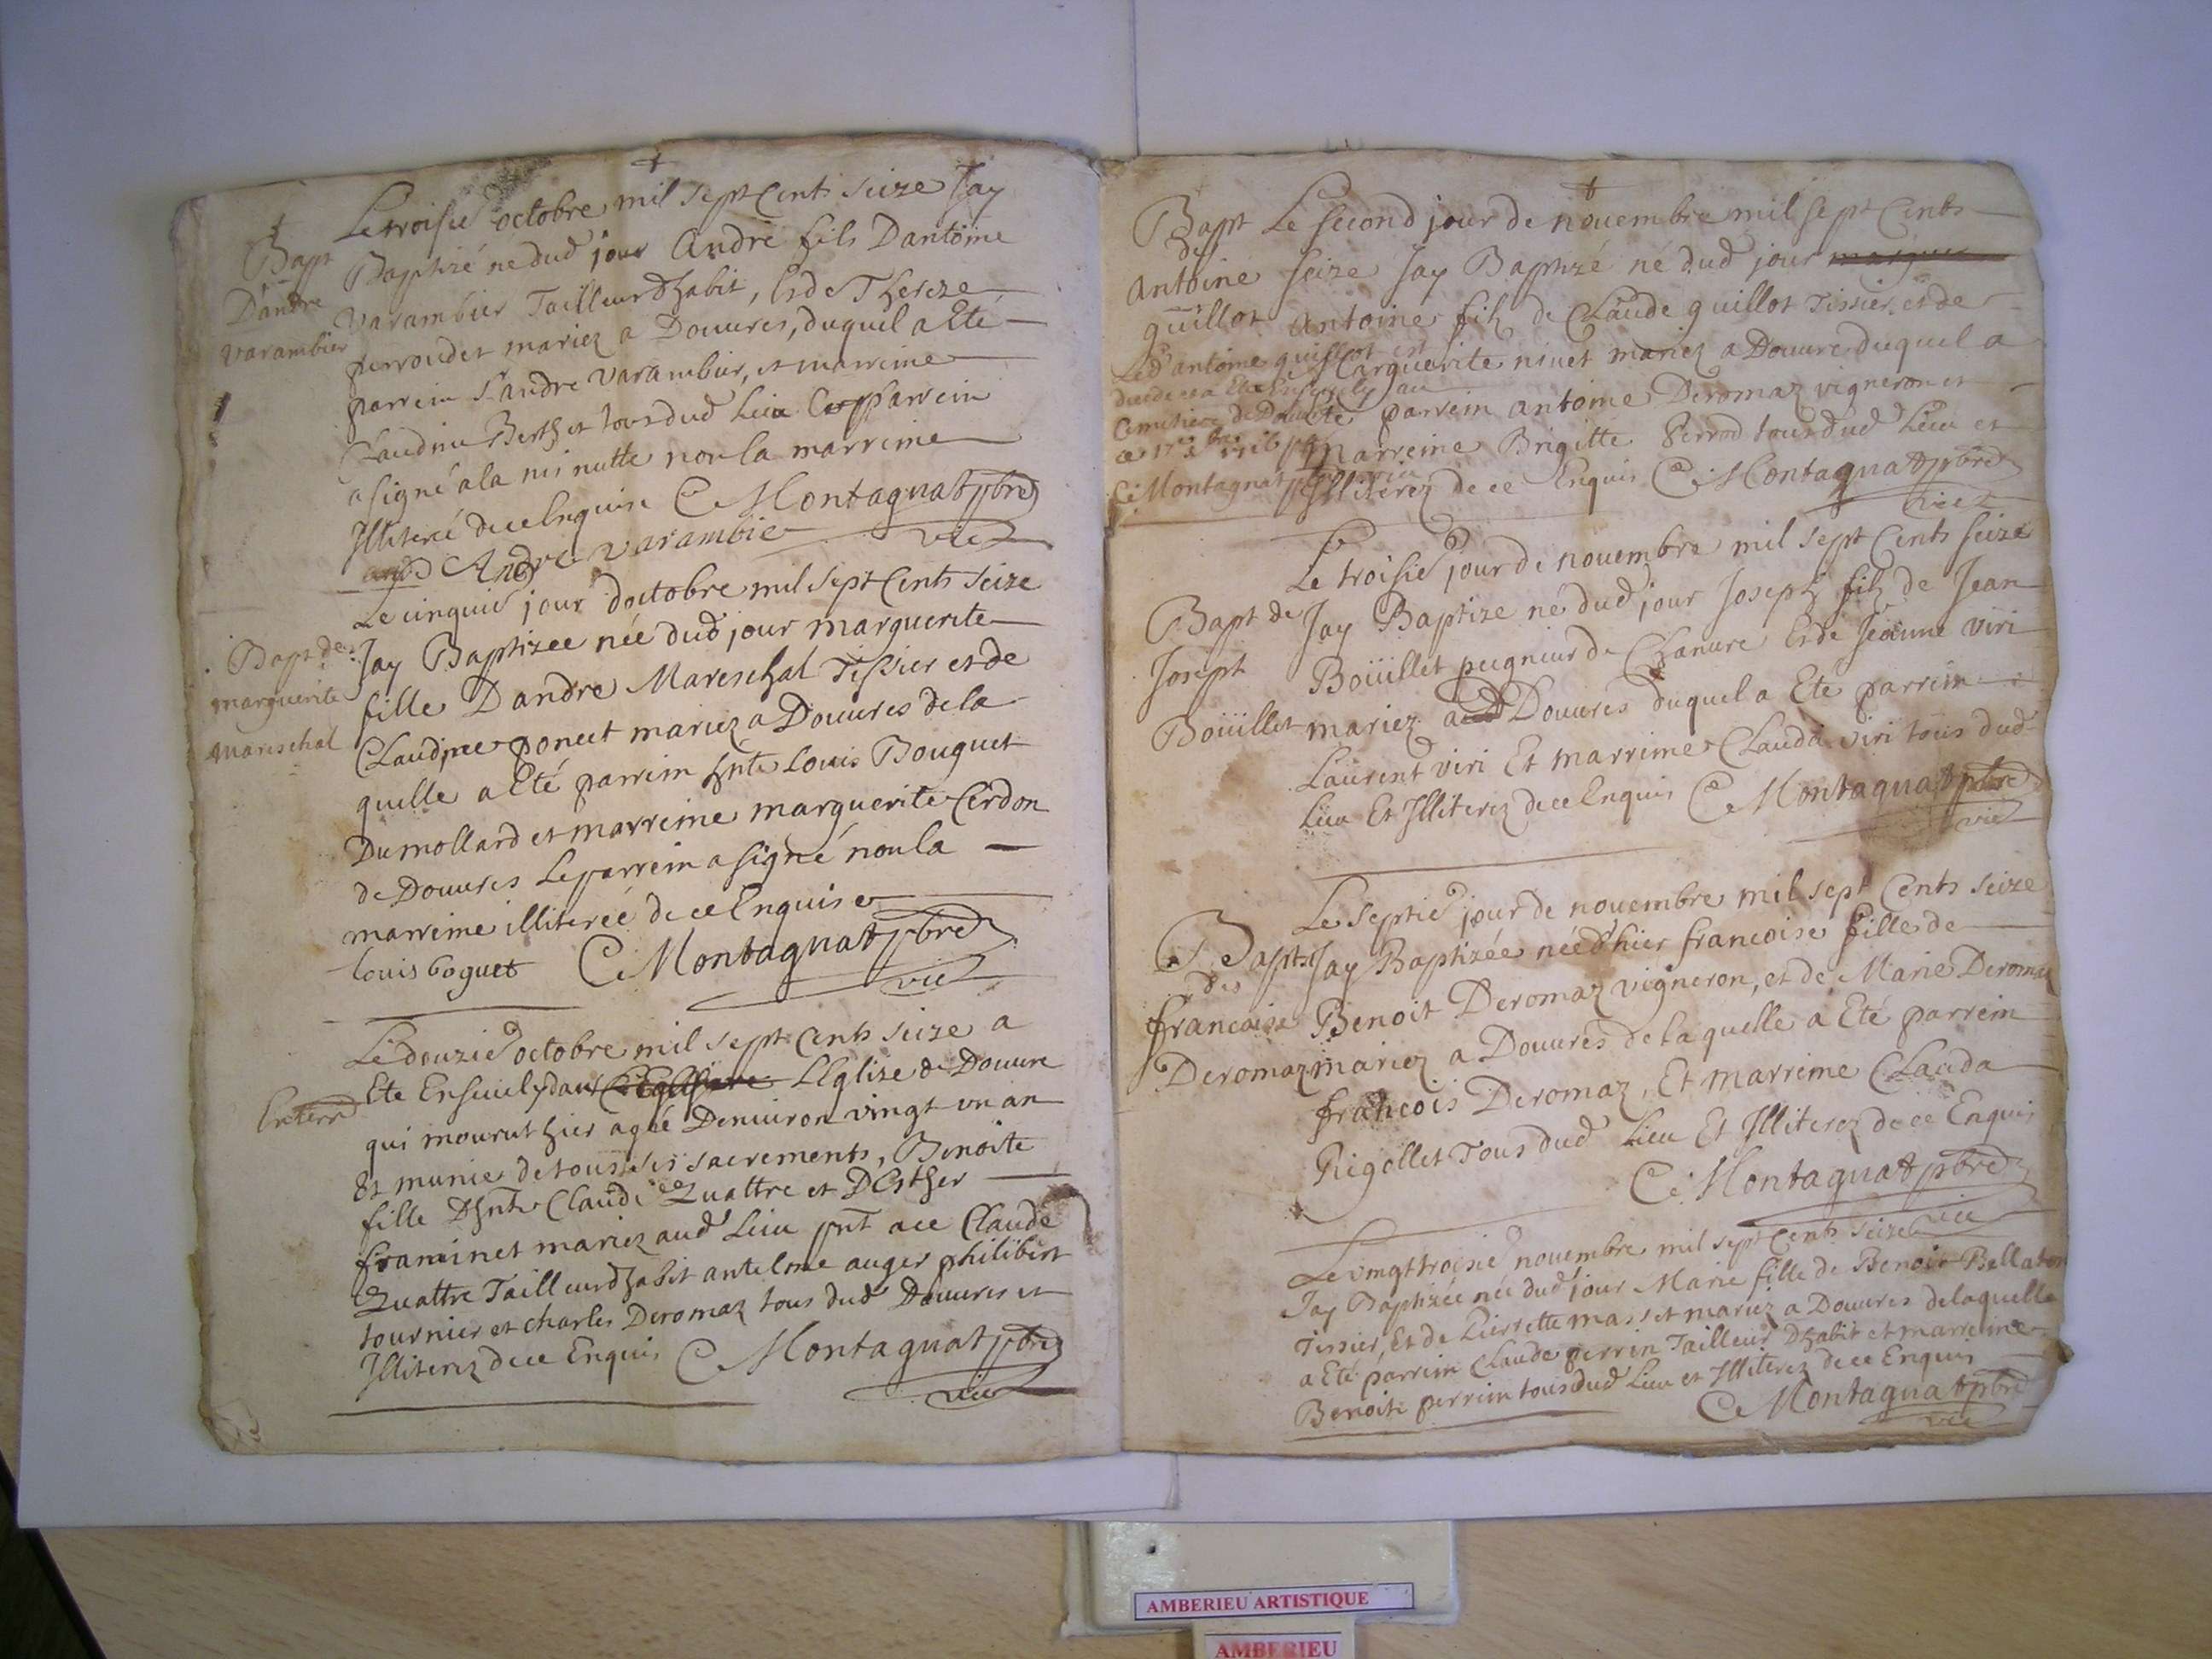 Bapt
Dandre
varambier
Le troisie octobre mil sept Cents seize Jay
Baptizé né dud jour André fils Dantoine
varambier Tailleur dhabit, Et de Thereze
perroudet mariez a Douures, duquel a Eté
parrein Sr andre varambier, et marreine
Claudine Berthet tous dud Lieu Le parrein
a signé a la minutte non la marreine
Illiteré de ce Enquise C Montagnat pbre
vic
André varambie
Bapt de
marguerite
mareschal
Le cinquie jour doctobre mil sept Cents seize
Jay Baptizee née dud jour marguerite
fille Dandre Mareschal Tissier et de
Claudine poncet mariez a Douures de la
quelle a Eté parrein hnte Louis Bouguet
Du mollard et marreine marguerite Cerdon
de Douures Le parrein a signé non la
marreine illiterée de ce Enquise
Louis boguet C Montagnat pbre
vic
Enterrt
Le douzie octobre mil sept Cents seize a
Ete Enseuely dans LEglise de Douure
qui mourut hier agée Denuiron vingt vn an
Et munie de tous ses sacrements, Benoite
fille Dhnte Claude Quattre et DEsther
framinet mariez aud Lieu pnt a ce Claude
Quattre Tailleur dhabit antelme auger philibert
tournier et charles Deromaz tous dud Douures et
Illiterez de ce Enquis C Montagnat pbre
vic
Bapt
de
antoine
guillot
Le second jour de nouembre mil sept Cents
seize Jay Baptizé né dud jour
antoine filz de Claude guillot Tissier et de
Marguerite niuet mariez a Douure duquel a
Eté parrein antoine Deromaz vigneron et
marreine Brigitte Perrod tous dud Lieu et
Illiterez de ce Enquis C Montagnat pbre
vic
Led antoine guillot est
decede et a Ete Enseuely au
Cemitiere de Douure
C Montagnat
Bapt de
Joseph
Boüillet
Le troisie jour de nouembre mil sept Cents seize
Jay Baptize né dud jour Joseph filz de Jean
Boüillet peigneur de Chanure Et de Jeanne viri
mariez a Douures duquel a Ete parrein
Laurent viri Et marreine Clauda viri tous dud
Lieu Et Illiterez de ce Enquis C Montagnat pbre
vic
Bapt
de
francoise
Deromaz
Le septie jour de nouembre mil sept Cents seize
Jay Baptizée née dhier francoise fille de
Benoit Deromaz vigneron, et de Marie Deromaz
mariez a Douures de laquelle a Eté parrein
francois Deromaz, Et marreine Clauda
Rigollet Tous dud Lieu Et Illiterez de ce Enquis
C Montagnat pbre
vic
Le vingt troisie nouembre mil sept Cents seize
Jay Baptizée née dud jour Marie fille de Benoit Bellaton
Tissier, Et de Pierrette masset mariez a Douures de laquelle
a Eté parrein Claude perrin Tailleur Dhabit et marreine
Benoite perrin tous dud Lieu et Illiterez de ce Enquis
C Montagnat pbre
vic
AMBERIEU ARTISTIQUE
AMBERIEU